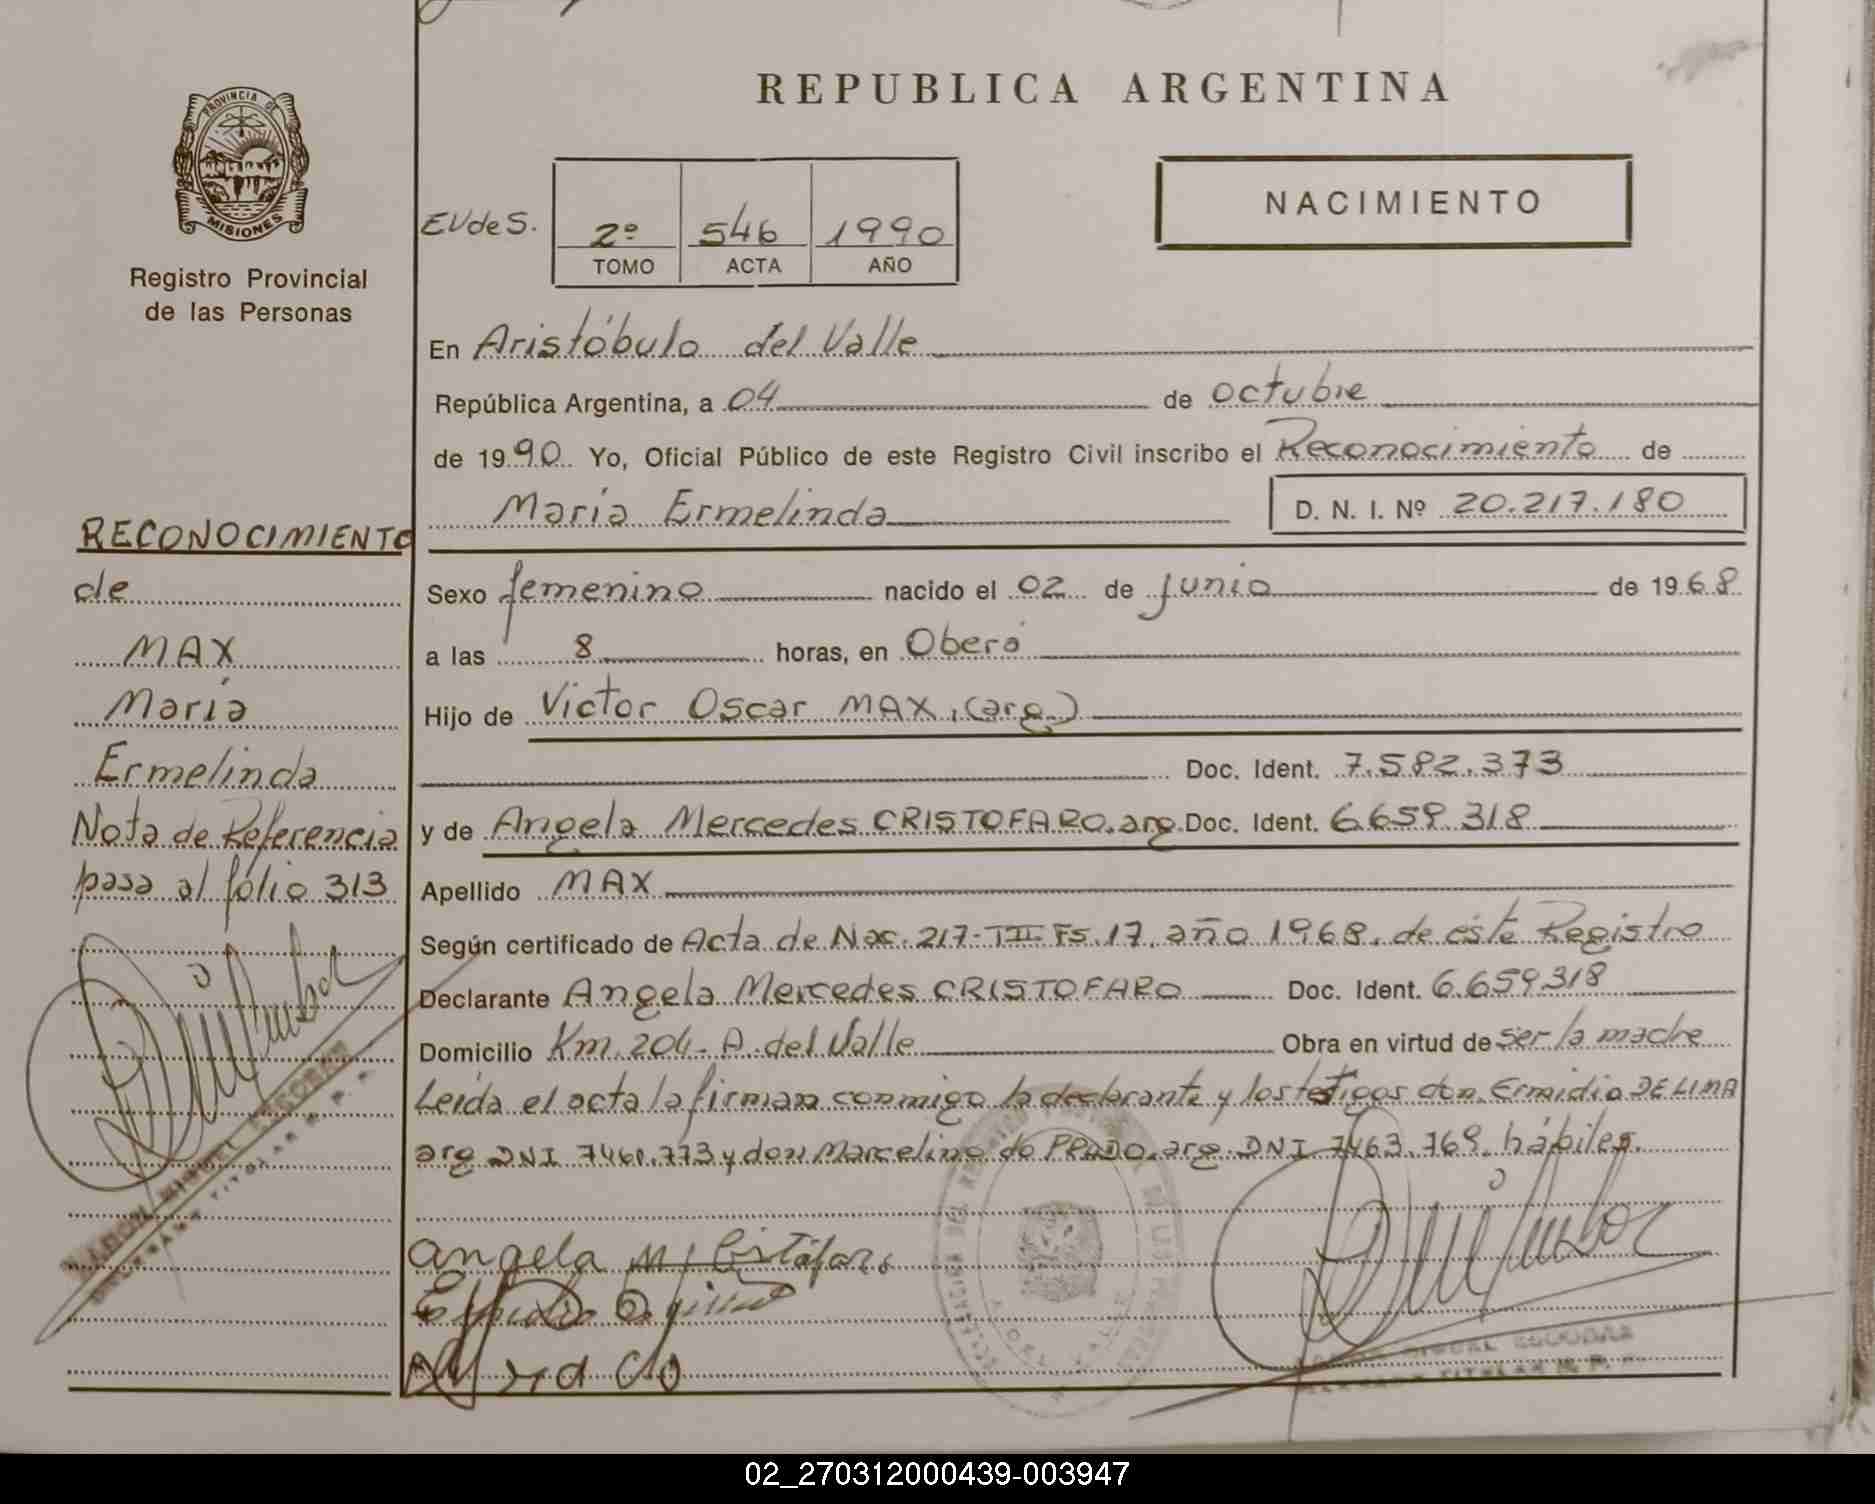 REPUBLICA ARGENTINA
PROVINCIA DE
MISIONES
Registro Provincial
de las Personas
EVdeS.
2º 546 1990
TOMO ACTA AÑO
NACIMIENTO
En Aristóbulo del Valle
República Argentina, a 04 de octubre
de 1990 Yo, Oficial Público de este Registro Civil inscribo el Reconocimiento de
María Ermelinda D. N. I. Nº 20.217.180
Sexo femenino nacido el 02 de junio de 1968
a las 8 horas, en Oberá
Hijo de Victor Oscar MAX, (arg.)
Doc. Ident. 7.582.373
y de Angela Mercedes CRISTOFARO. arg. Doc. Ident. 6.659.318
Apellido MAX
Según certificado de Acta de Nac. 217- TIII- Fs. 17. año 1968. de éste Registro
Declarante Angela Mercedes CRISTOFARO Doc. Ident. 6.659.318
Domicilio Km. 204- A. del Valle Obra en virtud de ser la madre
Leída el acta la firman conmigo la declarante y los testigos don. Ermidio DE LIMA
arg DNI 7460.773 y don Marcelino do PRADO. arg. DNI 7463.769. hábiles.
RECONOCIMIENTO
de
MAX
María
Ermelinda
Nota de Referencia
pasa al fólio 313
Angela M
MIGUEL ESCOBAR
TITULAR R. P.
02_270312000439-003947